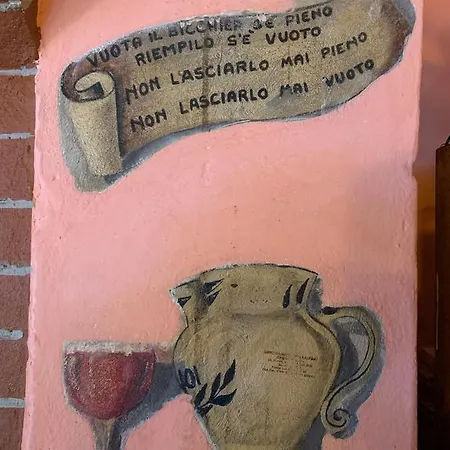 VUOTA IL BICCHIER S'È PIENO
RIEMPILO S'È VUOTO
NON L'ASCIARLO MAI PIENO
NON LASCIARLO MAI VUOTO